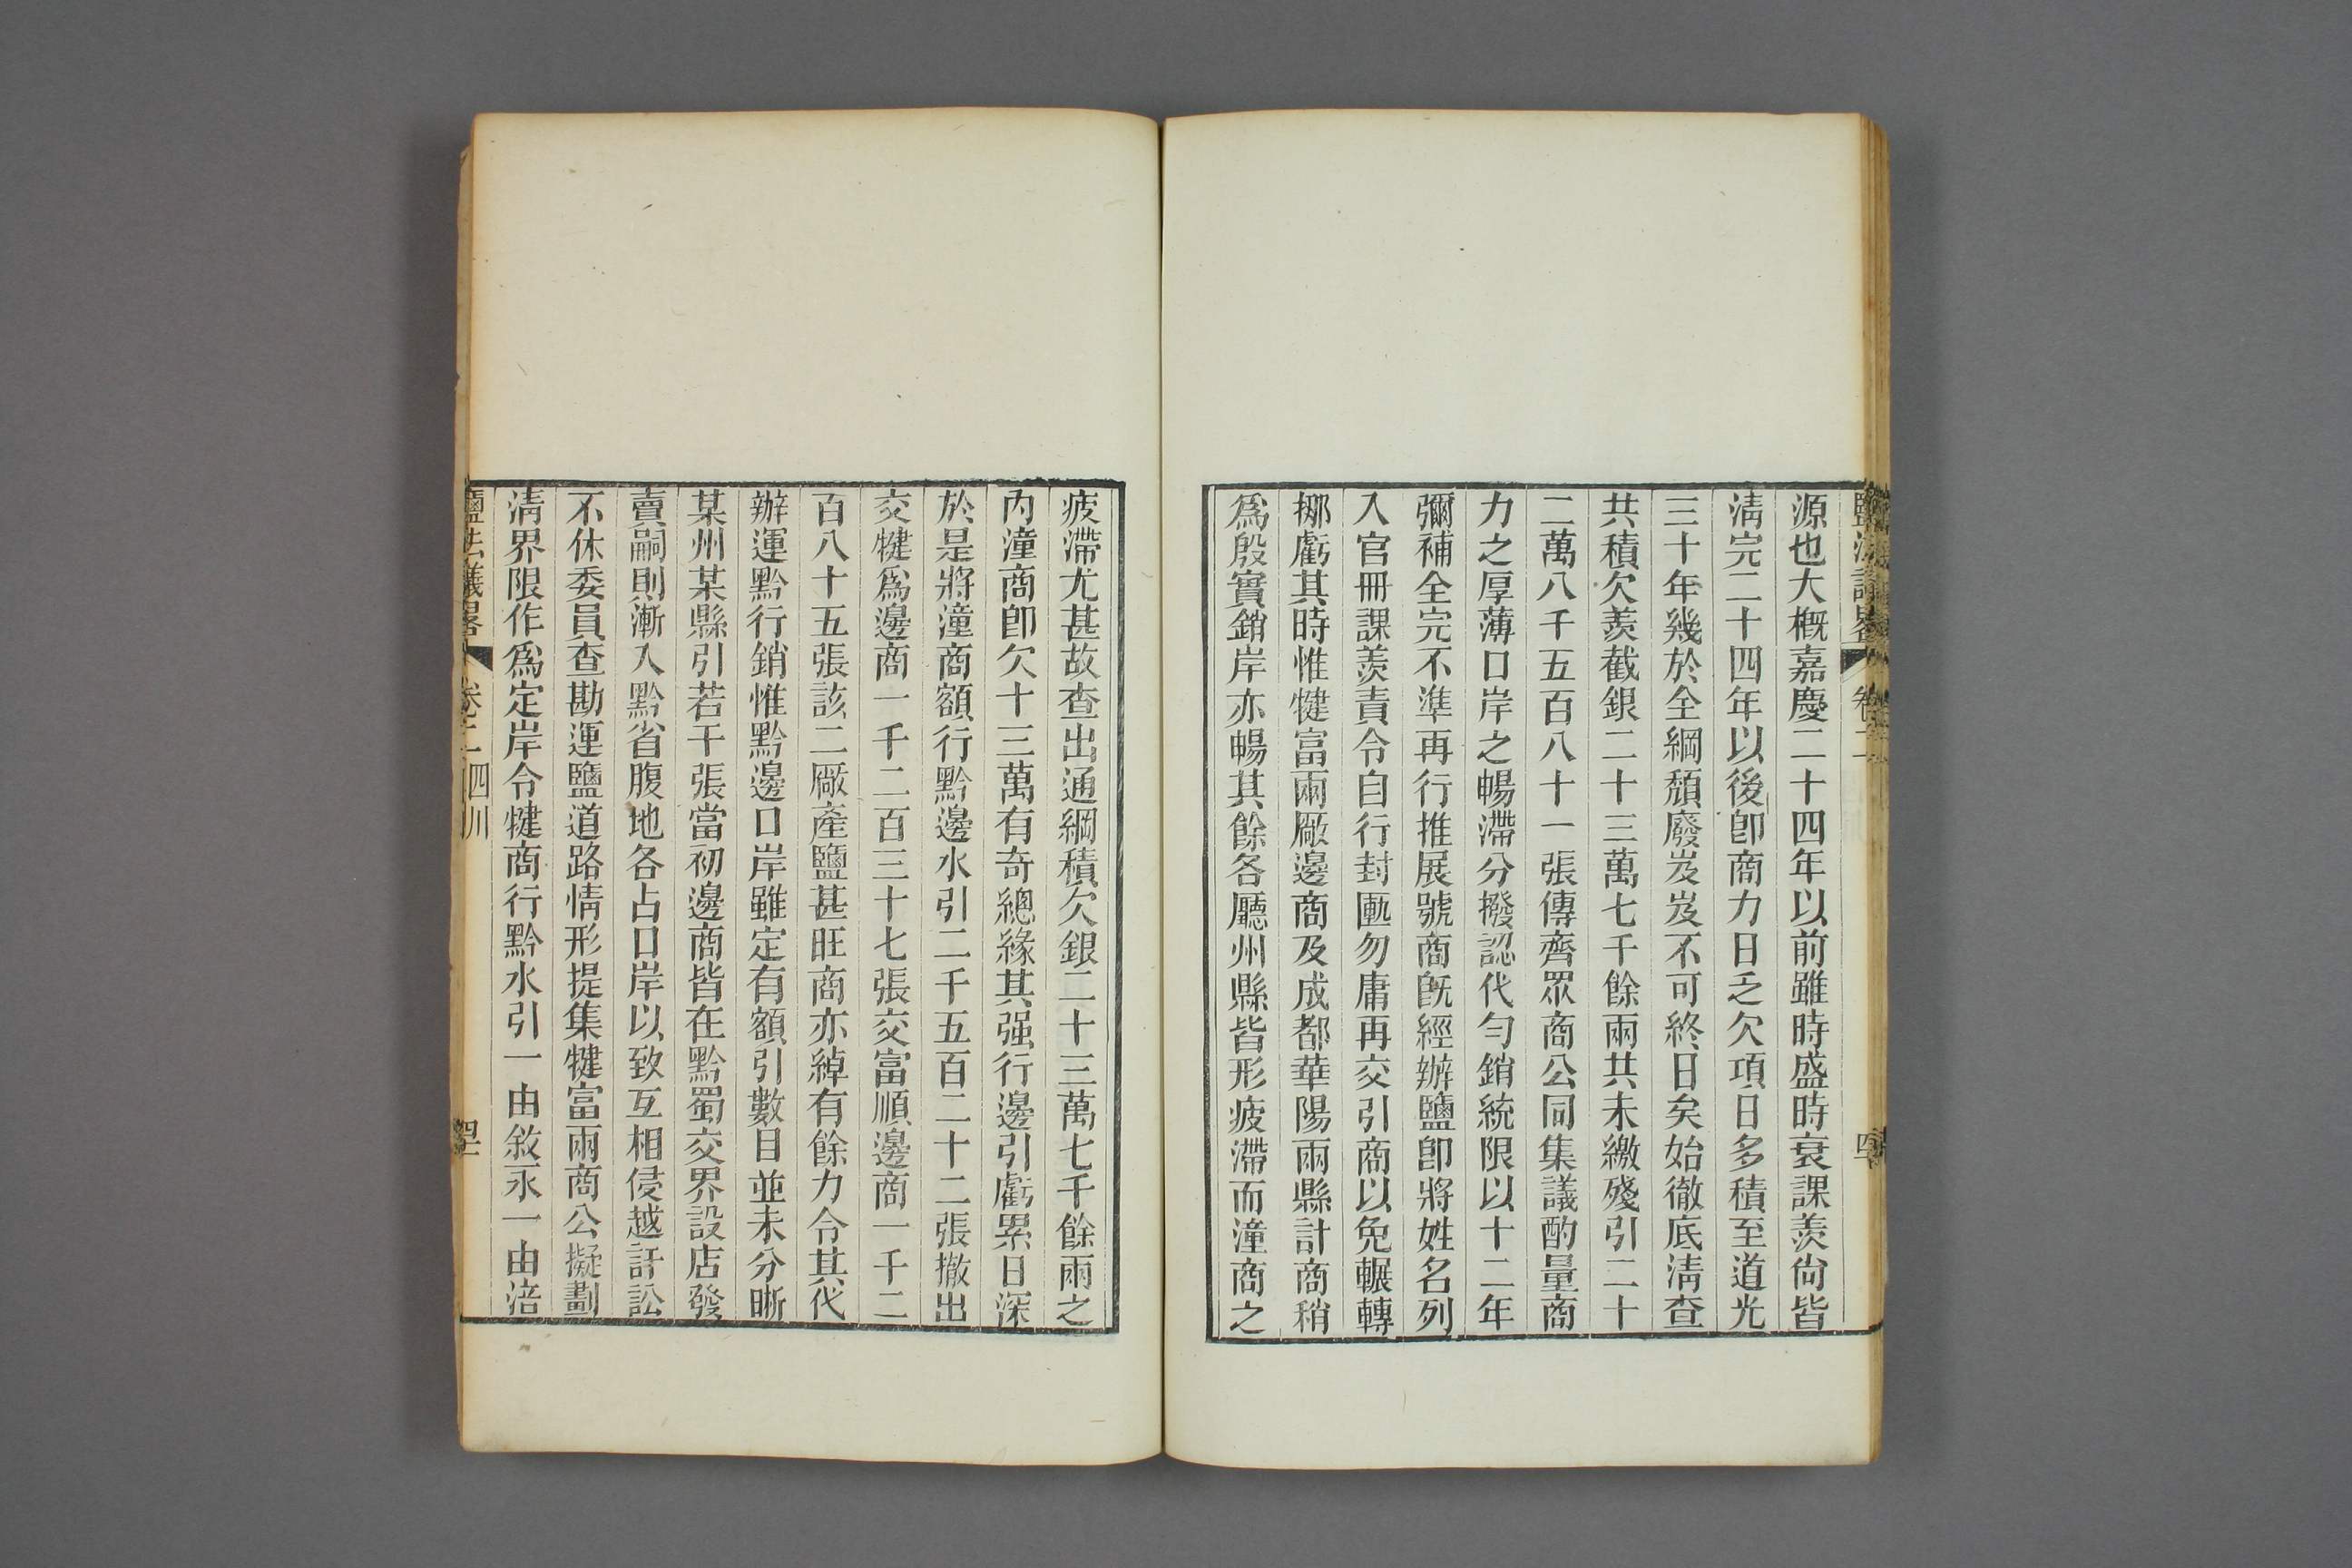 源也大概嘉慶二十四年以前雖時盛時衰課羨尙皆
淸完二十四年以後卽商力日乏欠項日多積至道光
三十年幾於全綱頹廢岌岌不可終日矣始徹底淸查
共積欠羨截銀二十三萬七千餘兩共未繳殘引二十
二萬八千五百八十一張傳齊眾商公同集議酌量商
力之厚薄口岸之暢滯分撥認代勻銷統限以十二年
彌補全完不準再行推展號商旣經辦鹽卽將姓名列
入官冊課羨責令自行封匭勿庸再交引商以免輾轉
挪虧其時惟犍富兩厰邊商及成都華陽兩縣計商稍
爲殷實銷岸亦暢其餘各廳州縣皆形疲滯而潼商之
疲滯尤甚故查出通綱積欠銀二十三萬七千餘兩之
內潼商卽欠十三萬有奇總緣其强行邊引虧累日深
於是將潼商額行黔邊水引二千五百二十二張撤出
交犍爲邊商一千二百三十七張交富順邊商一千二
百八十五張該二厰產鹽甚旺商亦綽有餘力令其代
辦運黔行銷惟黔邊口岸雖定有額引數目並未分晰
某州某縣引若干張當初邊商皆在黔蜀交界設店發
賣嗣則漸入黔省腹地各占口岸以致互相侵越訐訟
不休委員查勘運鹽道路情形提集犍富兩商公擬劃
淸界限作爲定岸令犍商行黔水引一由敘永一由涪
鹽法議畧
卷二
四川